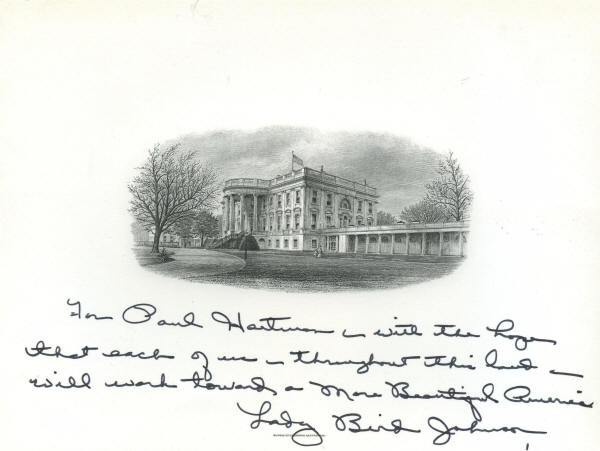 For Paul Hartman – with the hope
that each of us – throughout this land –
will work towards a More Beautiful America
Lady Bird Johnson